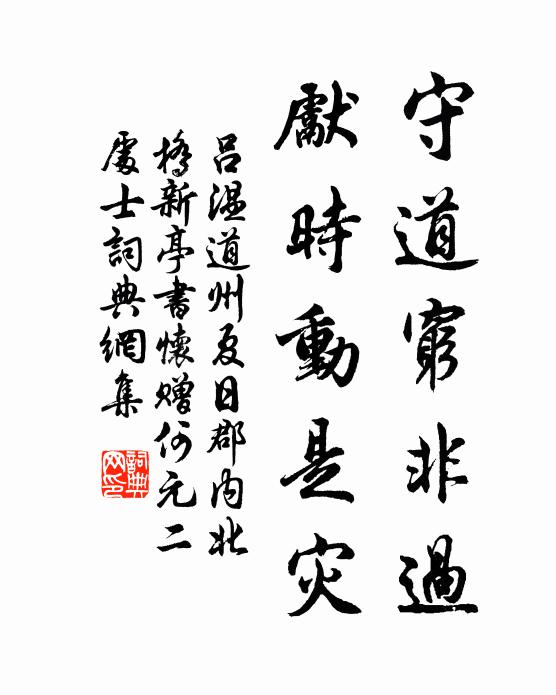 守道窮非過
獻時動是灾
呂温道州夏日郡内北
橋新亭書懷贈何元二
處士詞典網集
詞典网印